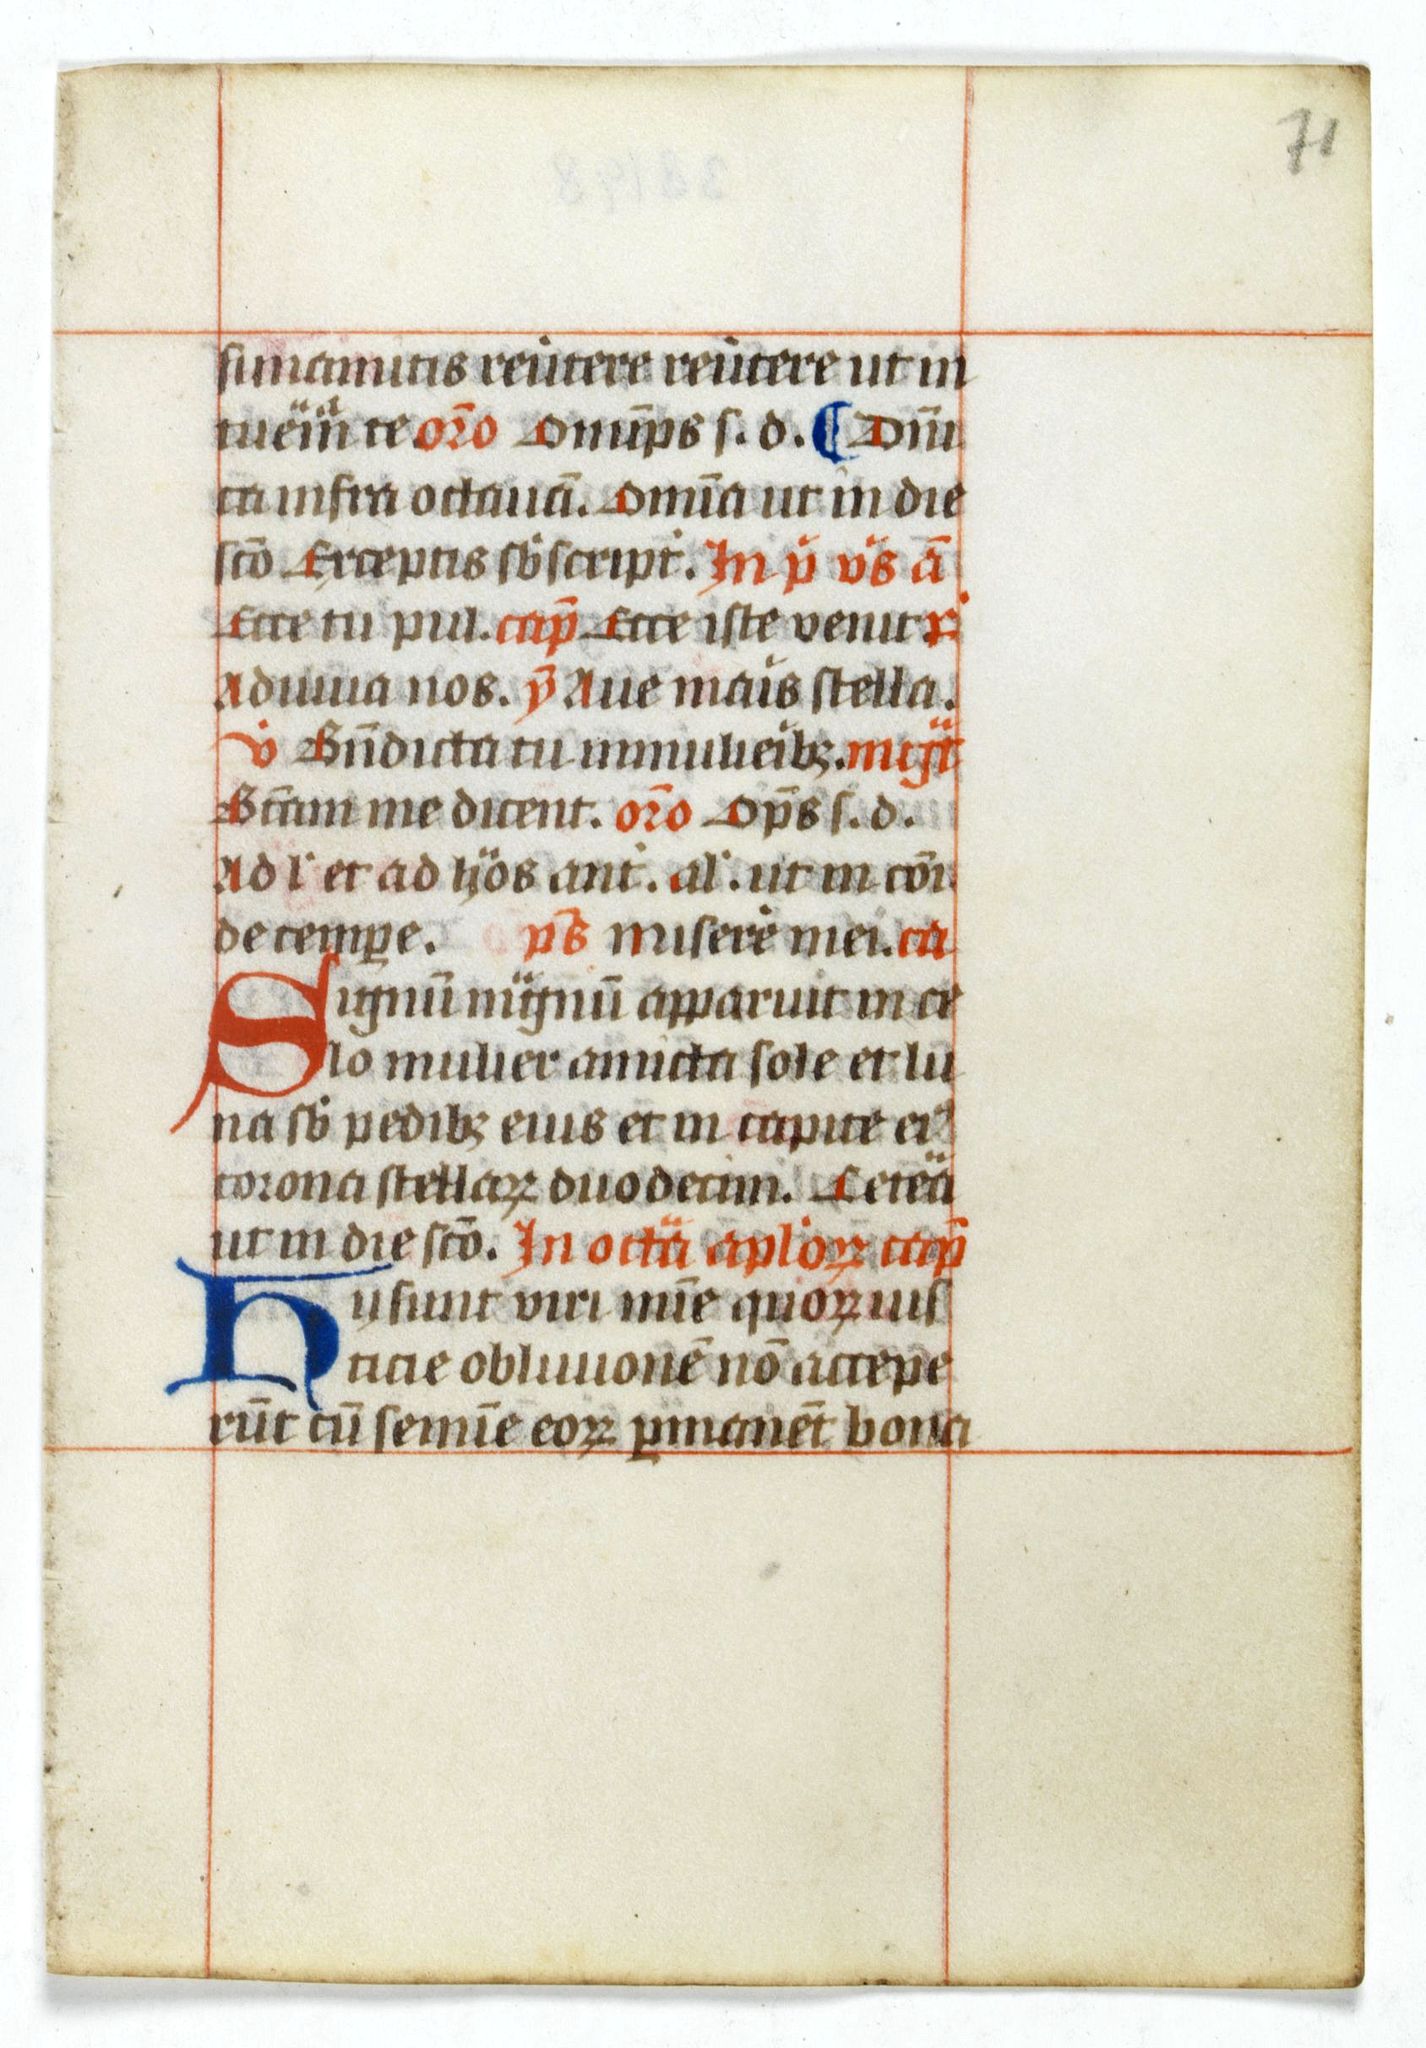 71
sunamitis reũtere reũtere ut in
tueãm̃ te oro͂ Omnip̃s s. d. Dñi
ca infra octauã. Omĩa ut in die
sc̃o Exceptis sb̾script̾. In p̾ vs̃ ã
Ecce tu pul. cap̃ Ecce iste venit R̾
Adiuua nos. y̾ Aue maris stella.
v̾ Bñdicta tu in mulierib. mag̃t
Bc̃am me dicent. oro͂ Op̃s s. d.
Ad l' et ad hos̃ ant̾. al'. ut in cõi
de tempe. ps̃ Misere̾ mei. ca
Signũ magnũ apparuit in ce
lo mulier amicta sole et lu
na sb̾ pedibꝫ eius et in capite ei
corona stellaꝝ duodecim. Cetea
ut in die sc̃o. In octã aploꝝ cap̃
Hij sunt viri mĩe quoꝝ ius
ticie obliuionẽ nõ accepe
rũt cũ semĩe eoꝝ ꝑmanẽt bona